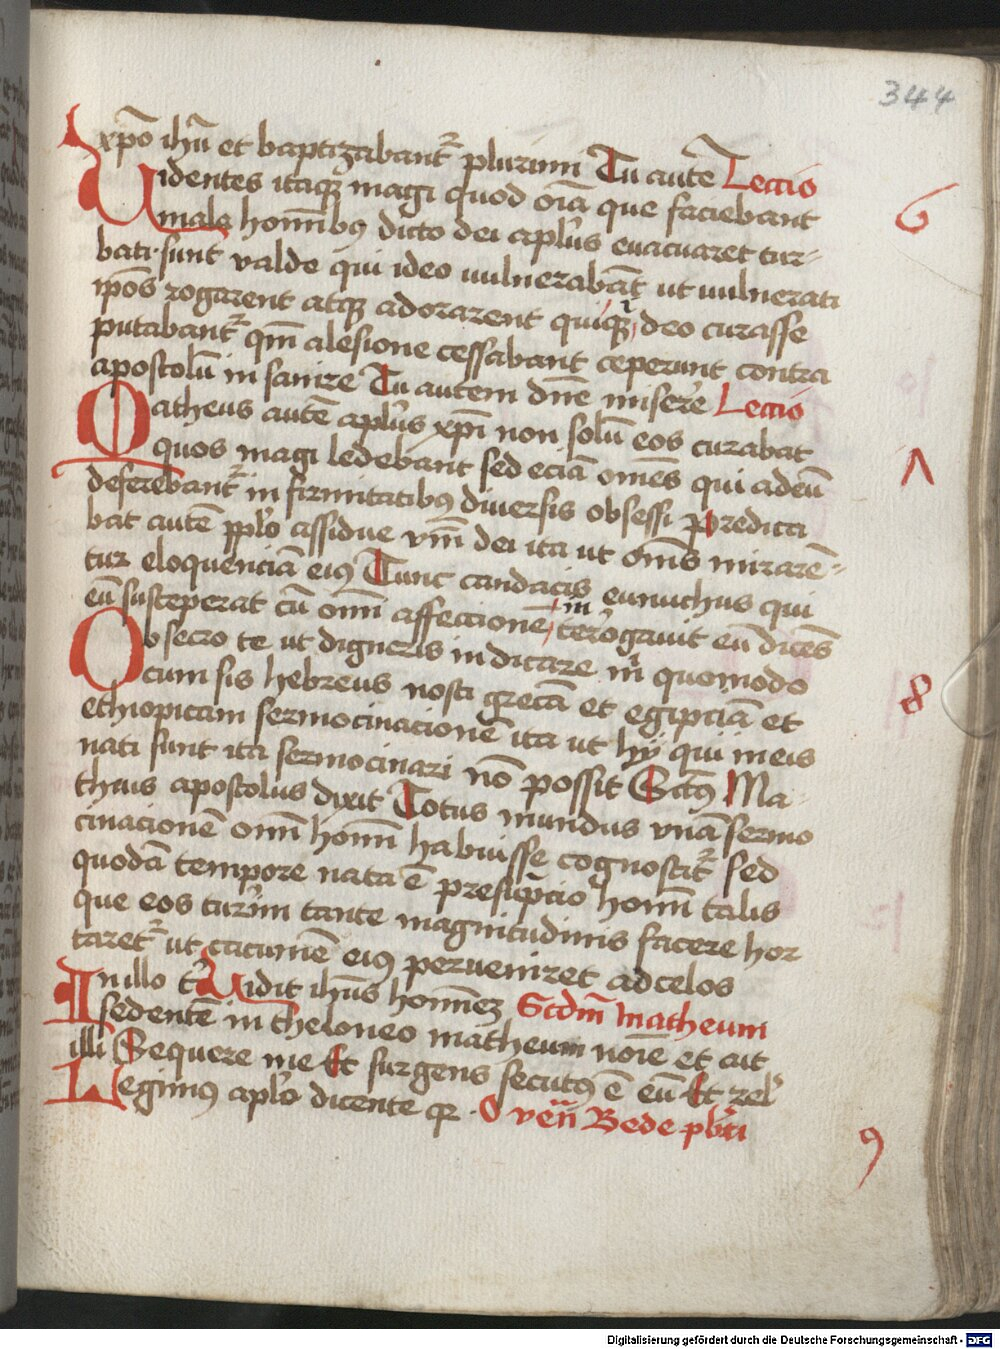 344
xp̄o ihū et baptizabant᷑ plurimi Tu autē Lectio
Uidentes itaqꝫ magi quod oīa que faciebant
6
mala hominibꝰ dicto dei apl̄us euacuaret tur-
bati sunt valde qui ideo uulnerabāt ut uulnerati
ip̄os rogarent atqꝫ adorarent deo curasse
putabant᷑ qm̄ a lesione cessabant ceperunt contra
apostolū in sanire Tu autem dn̄e miserere Lectio
Matheus autē apl̄us xp̄i non solū eos curabat
quos magi ledebant sed eciā om̄es qui ad eū
Λ
deferebant᷑ in firmitatibꝰ diuersis obsessi Predica
bat autē pplo assidue vm̄ dei ita ut om̄s mirarē-
tur eloquenciā eiꝰ Tunc candacis eunuchus qui
eū susceperat cū om̄i affectione in terrogauit eū dicēs
Obsecro te ut digneris in dicare m̄ quomodo
cum sis hebreus nosti grecā et egipciā et
8
ethiopicam sermocinacionē ita ut hij qui in eis
nati sunt ita sermocinari nō possit Sctꝰ Ma-
theus apostolus dixit Totus mundus vnā sermo
cinacionē om̄i homī habuisse cognoscit᷑ sed
quodā tempore nata ē presūpcio homī talis
que eos turrim tante magnitudinis facere hor
taret᷑ ut cacumē eiꝰ perueniret ad celos
In illo t̄ Uidit ihūs hominē Scdm̄ matheum
sedentē in theloneo matheum noīe et ait
illi Sequere me Et surgens secutꝰ ē eū Et rel
Legimꝰ apl̄o dicente qꝛ O ven̄ Bede pb̄ri
9
Digitalisierung gefördert durch die Deutsche Forschungsgemeinschaft - DFG